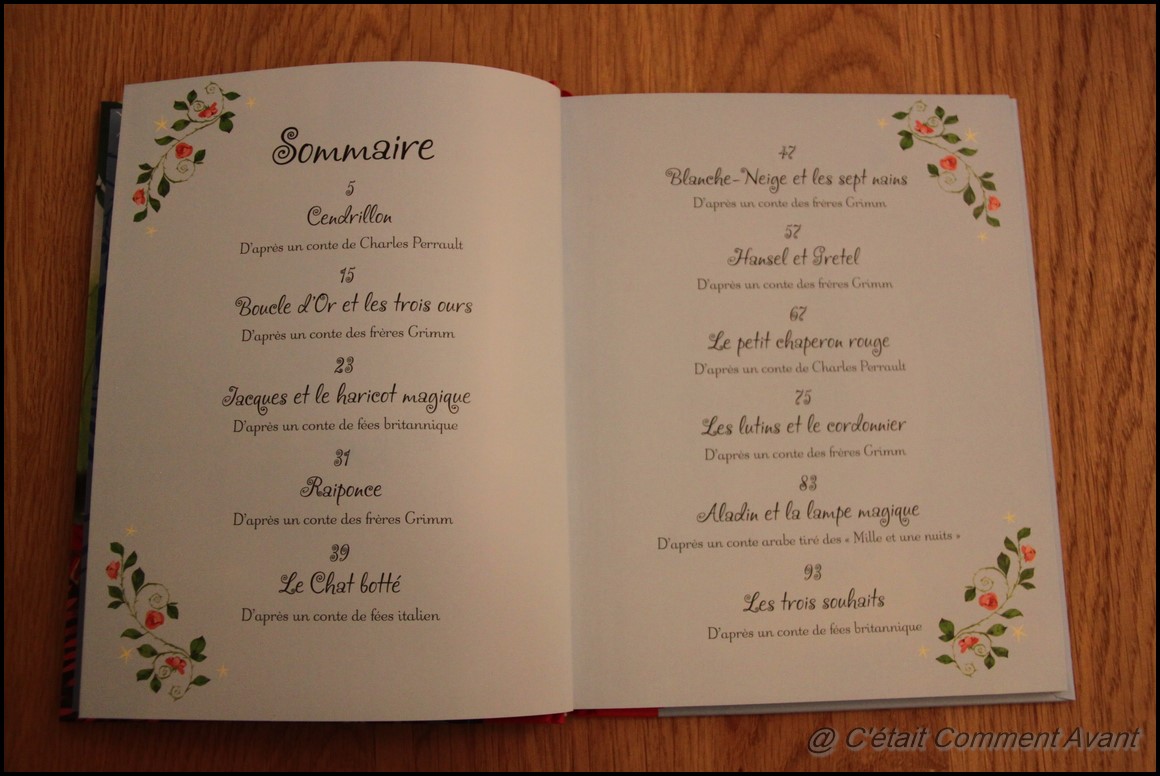 Sommaire
5
Cendrillon
D'après un conte de Charles Perrault
15
Boucle d'Or et les trois ours
D'après un conte des frères Grimm
23
Jacques et le haricot magique
D'après un conte de fées britannique
31
Raiponce
D'après un conte des frères Grimm
39
Le Chat botté
D'après un conte de fées italien
47
Blanche-Neige et les sept nains
D'après un conte des frères Grimm
57
Hansel et Gretel
D'après un conte des frères Grimm
67
Le petit chaperon rouge
D'après un conte de Charles Perrault
75
Les lutins et le cordonnier
D'après un conte des frères Grimm
83
Aladin et la lampe magique
D'après un conte arabe tiré des « Mille et une nuits »
93
Les trois souhaits
D'après un conte de fées britannique
@ C'était Comment Avant